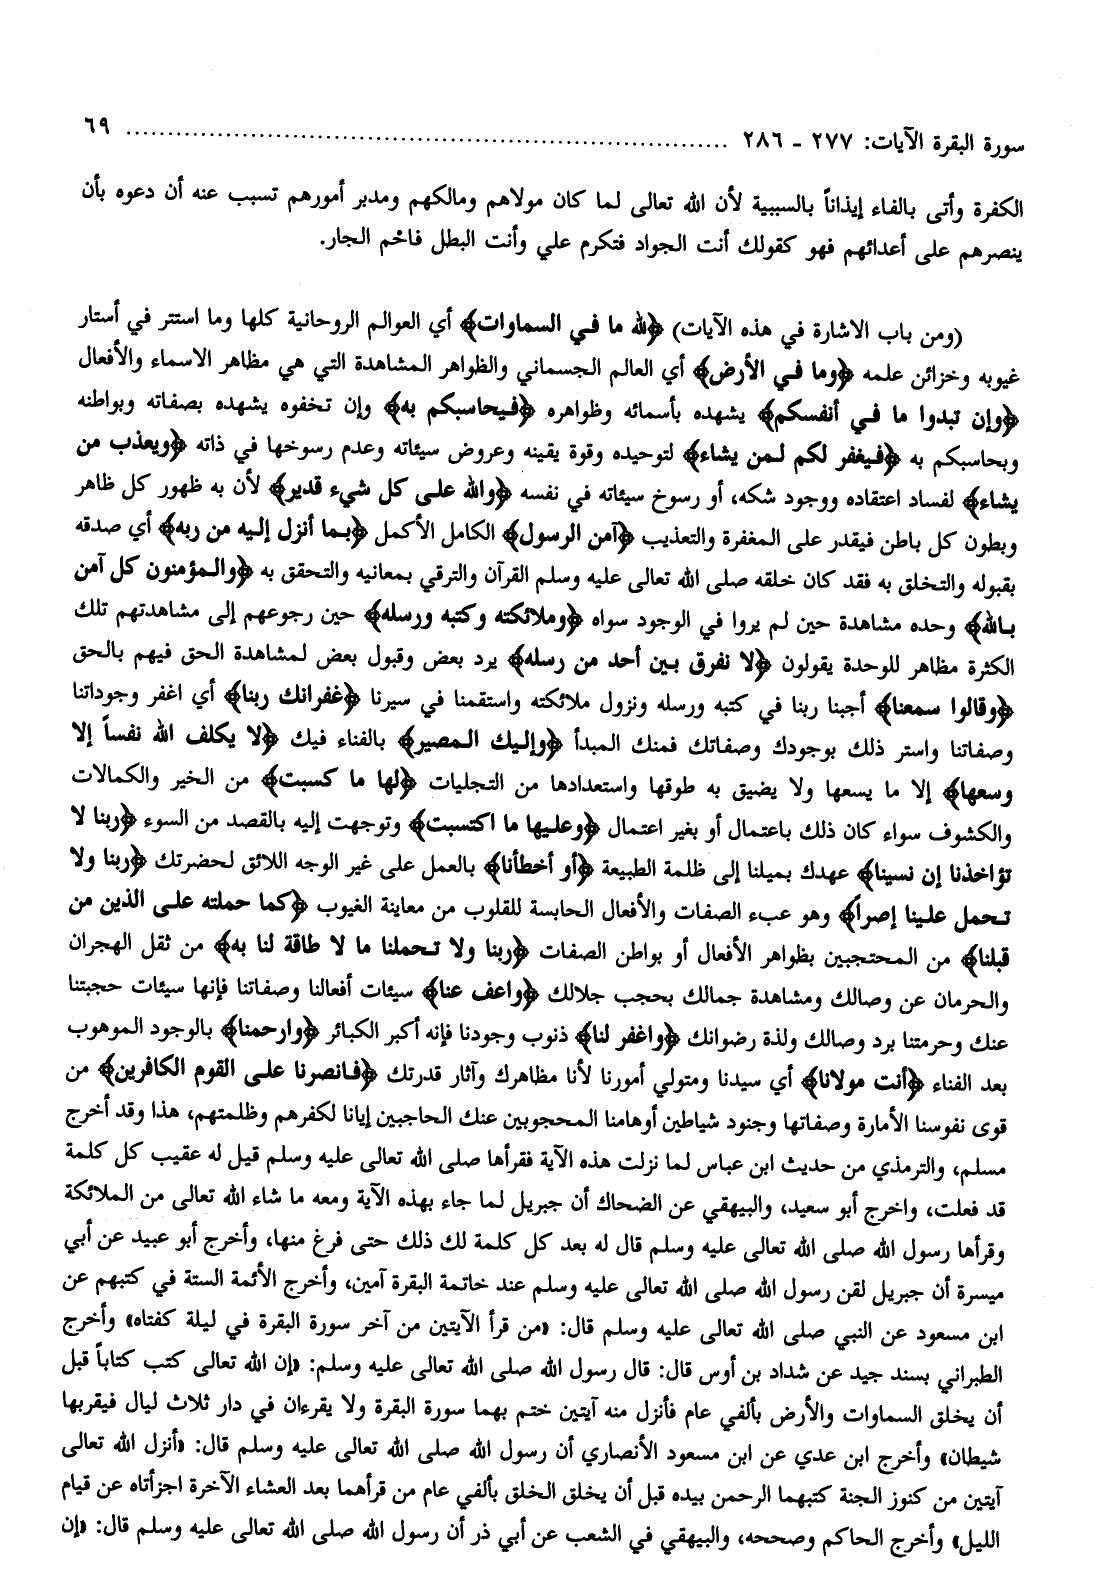 سورة البقرة الآيات: ٢٧٧ ـ ٢٨٦ ........................................................................ ٦٩
الكفرة وأتى بالفاء إيذاناً بالسببية لأن الله تعالى لما كان مولاهم ومالكهم ومدبر أمورهم تسبب عنه أن دعوه بأن
ينصرهم على أعدائهم فهو كقولك أنت الجواد فتكرم علي وأنت البطل فاحْم الجار.
(ومن باب الاشارة في هذه الآيات) ﴿لله ما في السماوات﴾ أي العوالم الروحانية كلها وما استتر في أستار
غيوبه وخزائن علمه ﴿وما في الأرض﴾ أي العالم الجسماني والظواهر المشاهدة التي هي مظاهر الاسماء والأفعال
﴿وإن تبدوا ما في أنفسكم﴾ يشهده بأسمائه وظواهره ﴿فيحاسبكم به﴾ وإن تخفوه يشهده بصفاته وبواطنه
وبحاسبكم به ﴿فيغفر لكم لمن يشاء﴾ لتوحيده وقوة يقينه وعروض سيئاته وعدم رسوخها في ذاته ﴿ويعذب من
يشاء﴾ لفساد اعتقاده ووجود شكه، أو رسوخ سيئاته في نفسه ﴿والله على كل شيء قدير﴾ لأن به ظهور كل ظاهر
وبطون كل باطن فيقدر على المغفرة والتعذيب ﴿آمن الرسول﴾ الكامل الأكمل ﴿بما أنزل إليه من ربه﴾ أي صدقه
بقبوله والتخلق به فقد كان خلقه صلى الله تعالى عليه وسلم القرآن والترقي بمعانيه والتحقق به ﴿والمؤمنون كل آمن
بالله﴾ وحده مشاهدة حين لم يروا في الوجود سواه ﴿وملائكته وكتبه ورسله﴾ حين رجوعهم إلى مشاهدتهم تلك
الكثرة مظاهر للوحدة يقولون ﴿لا نفرق بين أحد من رسله﴾ يرد بعض وقبول بعض لمشاهدة الحق فيهم بالحق
﴿وقالوا سمعنا﴾ أجبنا ربنا في كتبه ورسله ونزول ملائكته واستقمنا في سيرنا ﴿غفرانك ربنا﴾ أي اغفر وجوداتنا
وصفاتنا واستر ذلك بوجودك وصفاتك فمنك المبدأ ﴿وإليك المصير﴾ بالفناء فيك ﴿لا يكلف الله نفساً إلا
وسعها﴾ إلا ما يسعها ولا يضيق به طوقها واستعدادها من التجليات ﴿لها ما كسبت﴾ من الخير والكمالات
والكشوف سواء كان ذلك باعتمال أو بغير اعتمال ﴿وعليها ما اكتسبت﴾ وتوجهت إليه بالقصد من السوء ﴿ربنا لا
تؤاخذنا إن نسينا﴾ عهدك بميلنا إلى ظلمة الطبيعة ﴿أو أخطأنا﴾ بالعمل على غير الوجه اللائق لحضرتك ﴿ربنا ولا
تحمل علينا إصراً﴾ وهو عبء الصفات والأفعال الحابسة للقلوب من معاينة الغيوب ﴿كما حملته على الذين من
قبلنا﴾ من المحتجبين بظواهر الأفعال أو بواطن الصفات ﴿ربنا ولا تحملنا ما لا طاقة لنا به﴾ من ثقل الهجران
والحرمان عن وصالك ومشاهدة جمالك بحجب جلالك ﴿واعف عنا﴾ سيئات أفعالنا وصفاتنا فإنها سيئات حجبتنا
عنك وحرمتنا برد وصالك ولذة رضوانك ﴿واغفر لنا﴾ ذنوب وجودنا فإنه أكبر الكبائر ﴿وارحمنا﴾ بالوجود الموهوب
بعد الفناء ﴿أنت مولانا﴾ أي سيدنا ومتولي أمورنا لأنا مظاهرك وآثار قدرتك ﴿فانصرنا على القوم الكافرين﴾ من
قوى نفوسنا الأمارة وصفاتها وجنود شياطين أوهامنا المحجوبين عنك الحاجبين إيانا لكفرهم وظلمتهم، هذا وقد أخرج
مسلم، والترمذي من حديث ابن عباس لما نزلت هذه الآية فقرأها صلى الله تعالى عليه وسلم قيل له عقيب كل كلمة
قد فعلت، واخرج أبو سعيد، والبيهقي عن الضحاك أن جبريل لما جاء بهذه الآية ومعه ما شاء الله تعالى من الملائكة
وقرأها رسول الله صلى الله تعالى عليه وسلم قال له بعد كل كلمة لك ذلك حتى فرغ منها، وأخرج أبو عبيد عن أبي
ميسرة أن جبريل لقن رسول الله صلى الله تعالى عليه وسلم عند خاتمة البقرة آمين، وأخرج الأئمة الستة في كتبهم عن
ابن مسعود عن النبي صلى الله تعالى عليه وسلم قال: «من قرأ الآيتين من آخر سورة البقرة في ليلة كفتاه» وأخرج
الطبراني بسند جيد عن شداد بن أوس قال: قال رسول الله صلى الله تعالى عليه وسلم: «إن الله تعالى كتب كتاباً قبل
أن يخلق السماوات والأرض بألفي عام فأنزل منه آيتين ختم بهما سورة البقرة ولا يقرءان في دار ثلاث ليال فيقربها
شيطان» وأخرج ابن عدي عن ابن مسعود الأنصاري أن رسول الله صلى الله تعالى عليه وسلم قال: «أنزل الله تعالى
آيتين من كنوز الجنة كتبهما الرحمن بيده قبل أن يخلق الخلق بألفي عام من قرأهما بعد العشاء الآخرة اجزأتاه عن قيام
الليل» وأخرج الحاكم وصححه، والبيهقي في الشعب عن أبي ذر أن رسول الله صلى الله تعالى عليه وسلم قال: «إن